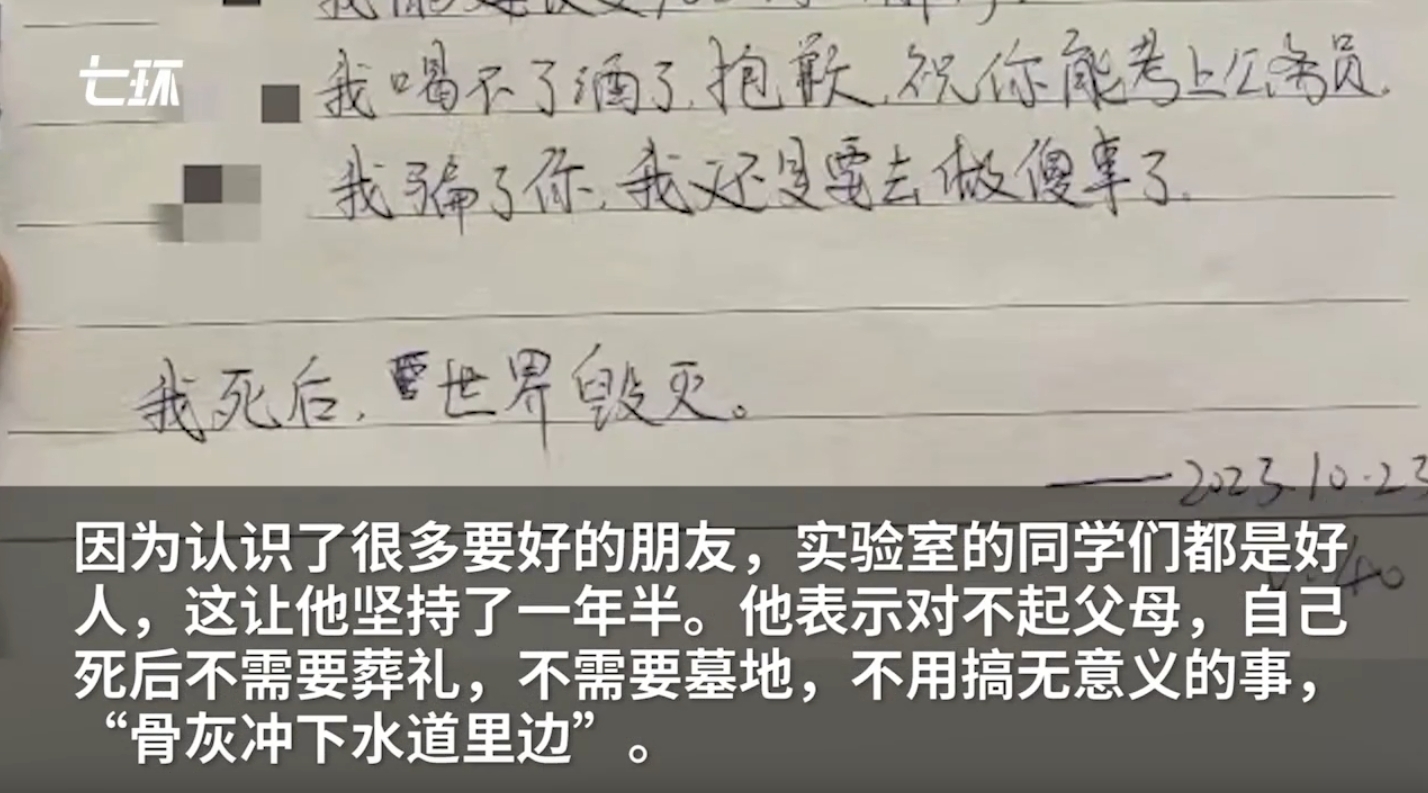 七环
我喝不了酒了,抱歉,祝你能考上公务员.
我骗了你,我还是要去做傻事了.
我死后,世界毁灭。
——2023.10.23
因为认识了很多要好的朋友，实验室的同学们都是好
人，这让他坚持了一年半。他表示对不起父母，自己
死后不需要葬礼，不需要墓地，不用搞无意义的事，
“骨灰冲下水道里边”。